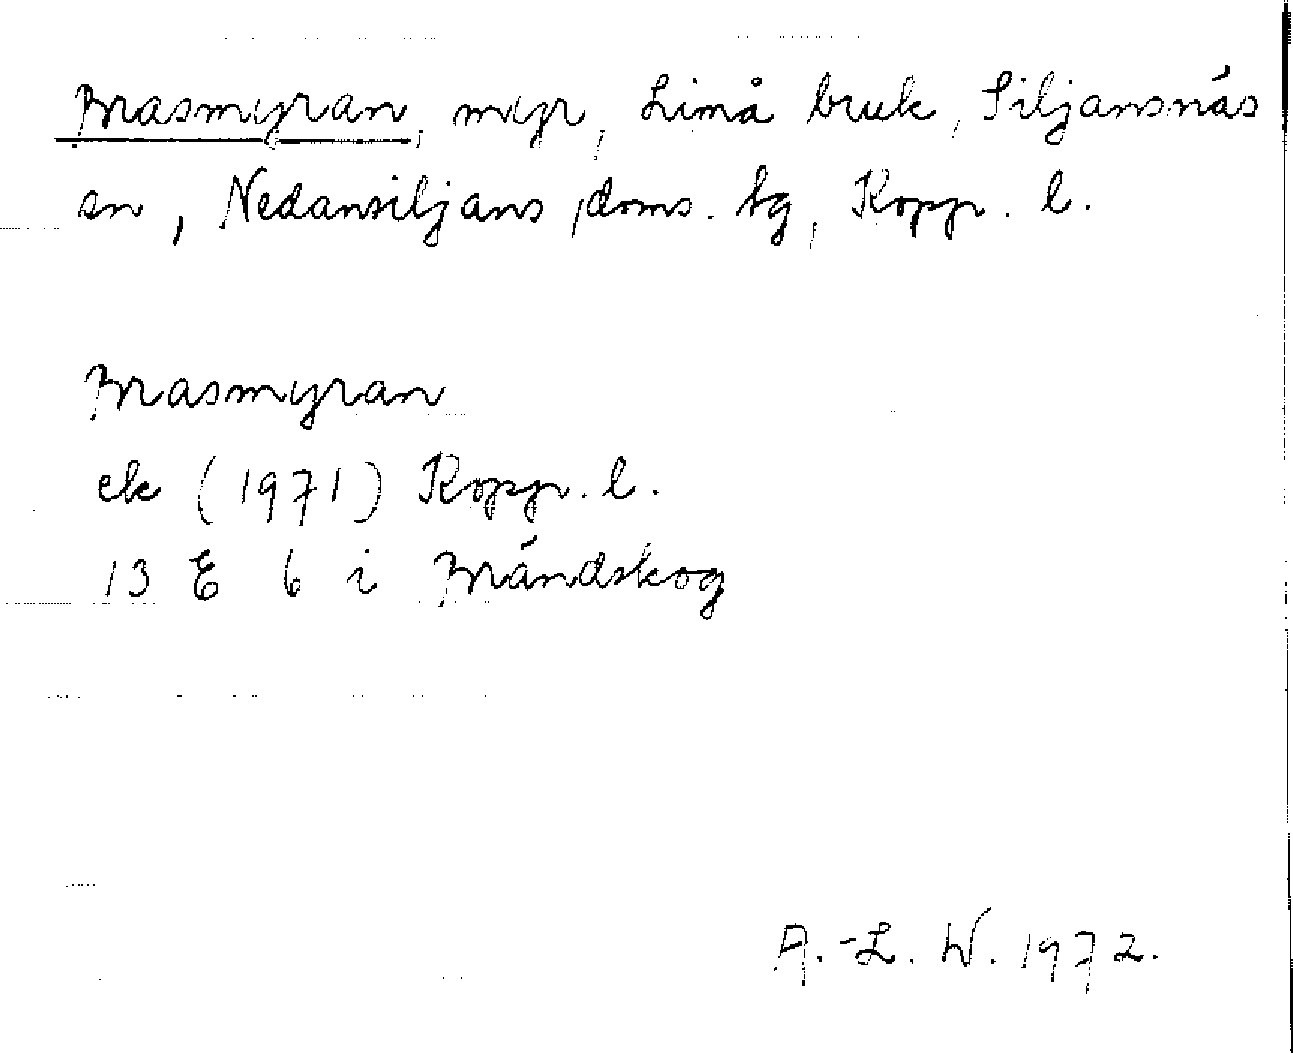 Brasmyran, myr, Limå bruk, Siljansnäs
sn, Nedansiljans doms. tg, Kopp. l.
Brasmyran
ek (1971) Kopp. l.
13 E 6 i Brändskog
A.-L. W. 1972.